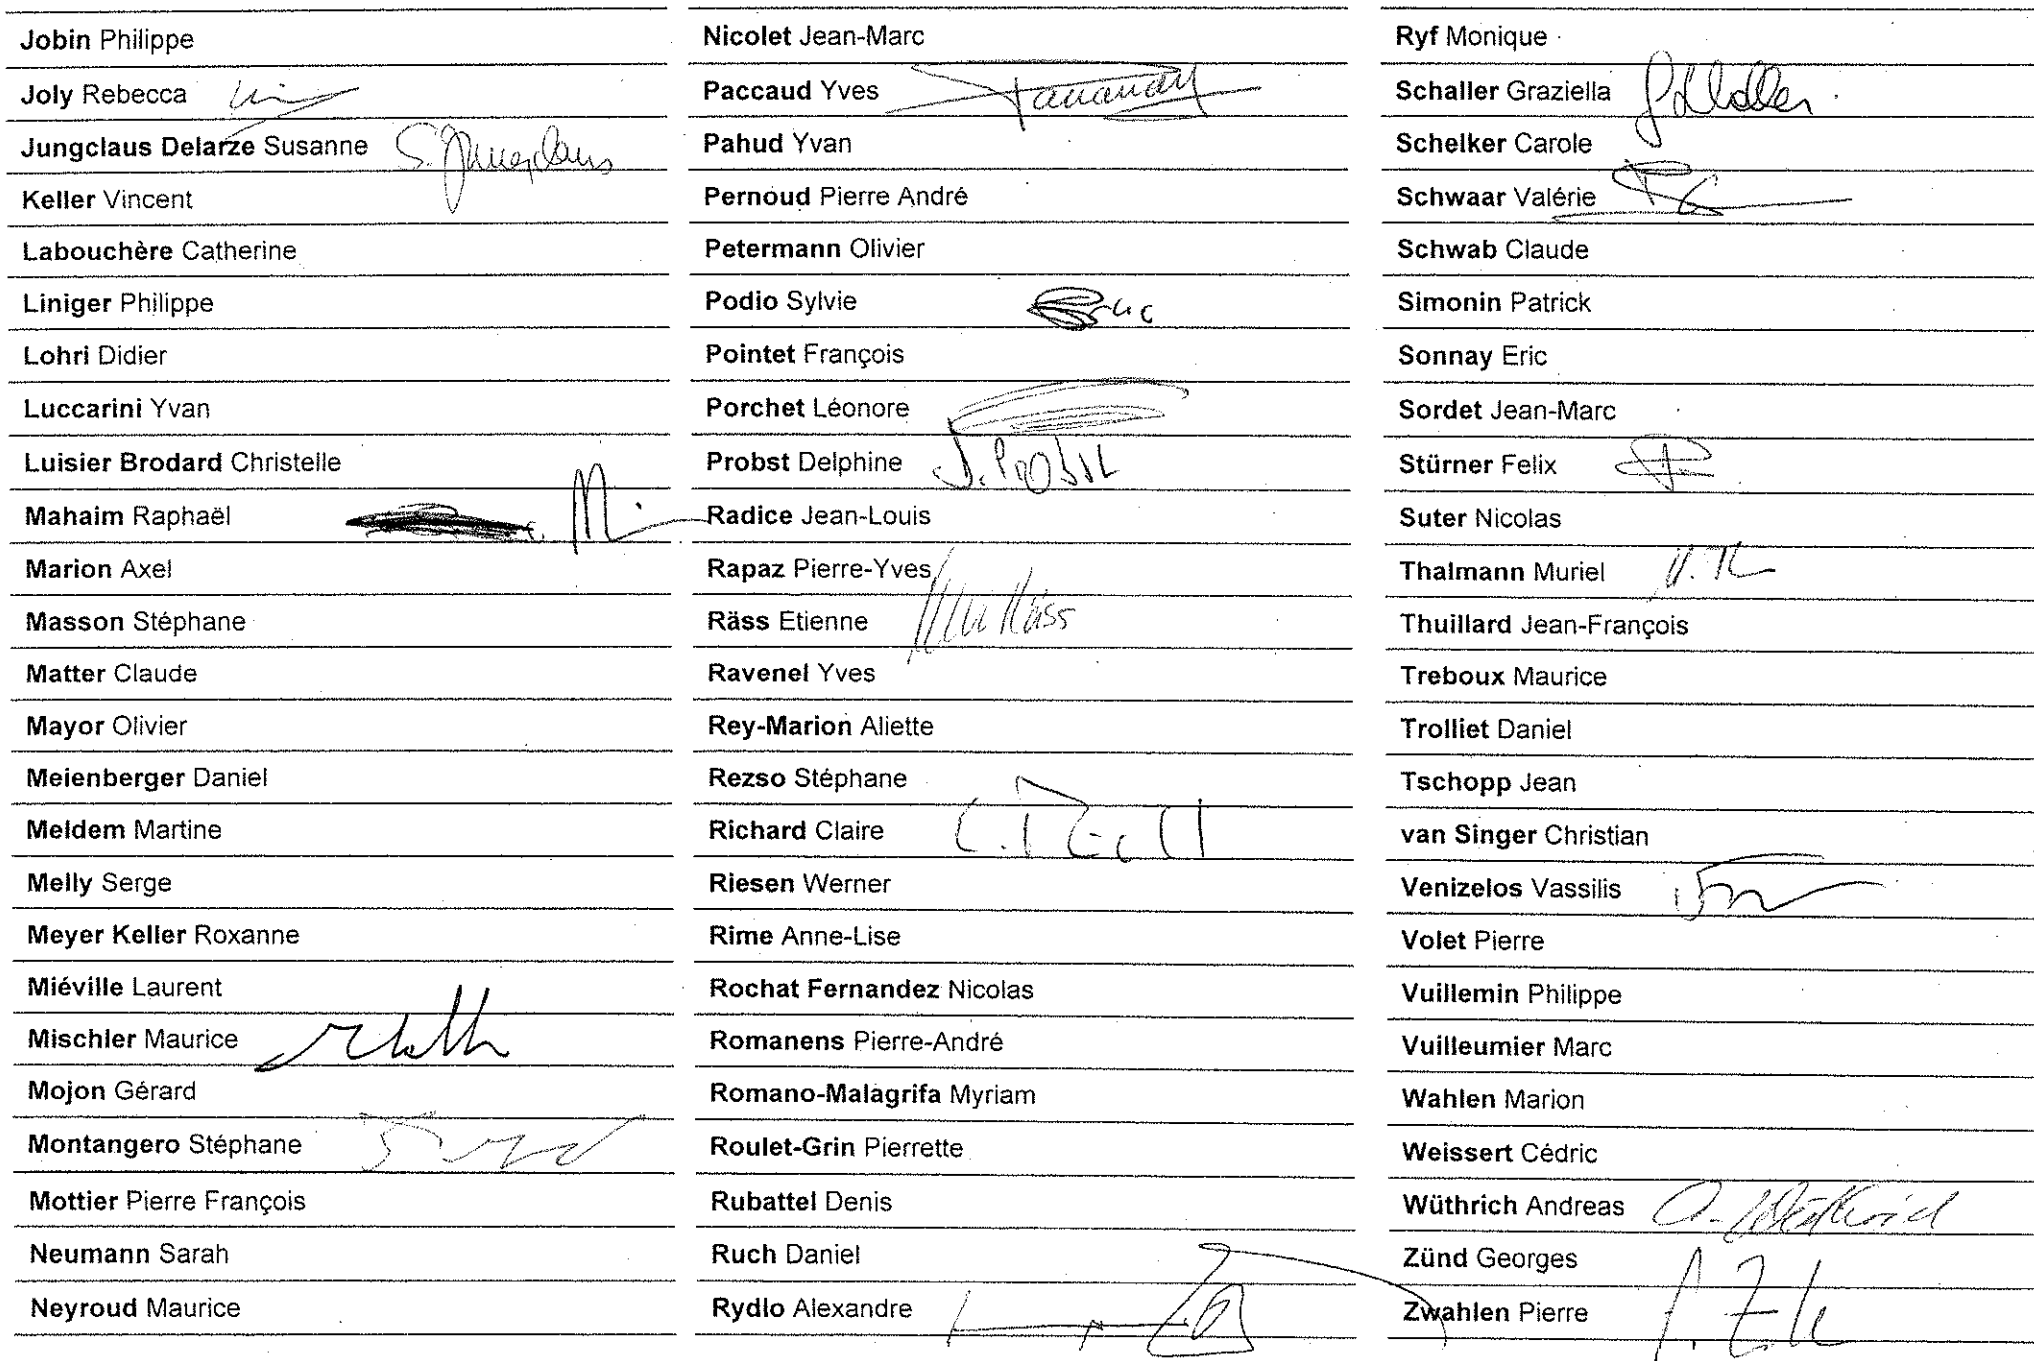 Jobin Philippe
Joly Rebecca
Jungclaus Delarze Susanne S. Jungclaus
Keller Vincent
Labouchère Catherine
Liniger Philippe
Lohri Didier
Luccarini Yvan
Luisier Brodard Christelle
Mahaim Raphaël
Marion Axel
Masson Stéphane
Matter Claude
Mayor Olivier
Meienberger Daniel
Meldem Martine
Melly Serge
Meyer Keller Roxanne
Miéville Laurent
Mischler Maurice
Mojon Gérard
Montangero Stéphane
Mottier Pierre François
Neumann Sarah
Neyroud Maurice
Nicolet Jean-Marc
Paccaud Yves
Pahud Yvan
Pernoud Pierre André
Petermann Olivier
Podio Sylvie
Pointet François
Porchet Léonore
Probst Delphine D. Probst
Radice Jean-Louis
Rapaz Pierre-Yves
Räss Etienne Räss
Ravenel Yves
Rey-Marion Aliette
Rezso Stéphane
Richard Claire
Riesen Werner
Rime Anne-Lise
Rochat Fernandez Nicolas
Romanens Pierre-André
Romano-Malagrifa Myriam
Roulet-Grin Pierrette
Rubattel Denis
Ruch Daniel
Rydlo Alexandre
Ryf Monique
Schaller Graziella
Schelker Carole
Schwaar Valérie
Schwab Claude
Simonin Patrick
Sonnay Eric
Sordet Jean-Marc
Stürner Felix
Suter Nicolas
Thalmann Muriel
Thuillard Jean-François
Treboux Maurice
Trolliet Daniel
Tschopp Jean
van Singer Christian
Venizelos Vassilis
Volet Pierre
Vuillemin Philippe
Vuilleumier Marc
Wahlen Marion
Weissert Cédric
Wüthrich Andreas A. Wüthrich
Zünd Georges
Zwahlen Pierre